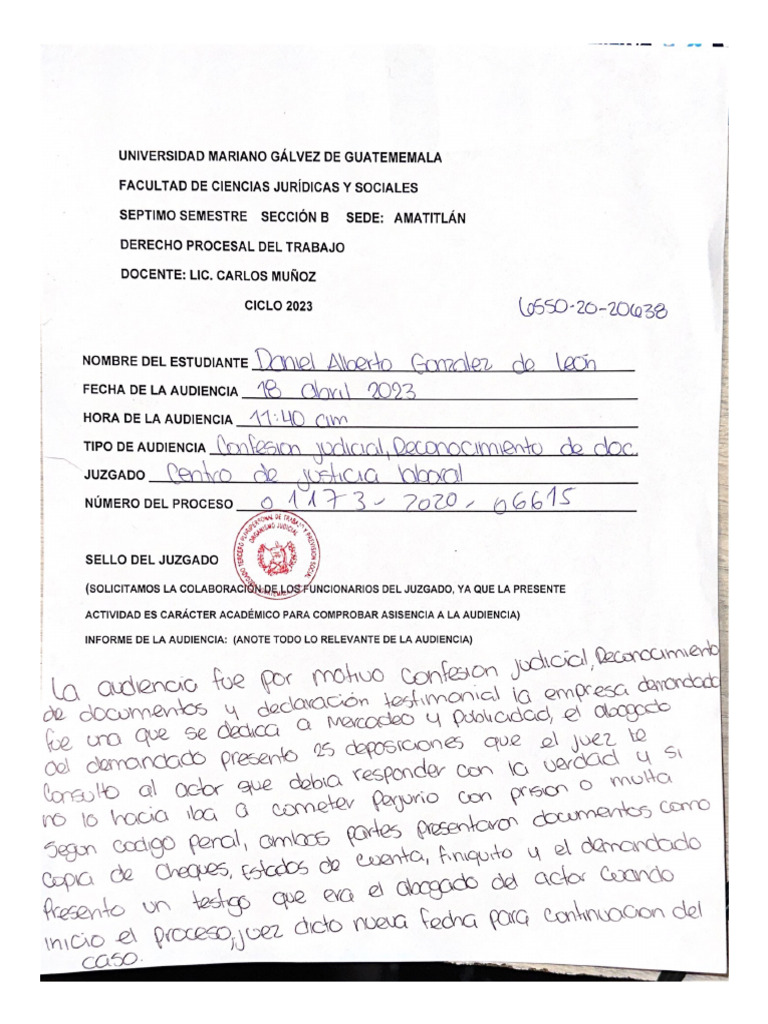 UNIVERSIDAD MARIANO GÁLVEZ DE GUATEMEMALA
FACULTAD DE CIENCIAS JURÍDICAS Y SOCIALES
SEPTIMO SEMESTRE SECCIÓN B SEDE: AMATITLÁN
DERECHO PROCESAL DEL TRABAJO
DOCENTE: LIC. CARLOS MUÑOZ
CICLO 2023
6550-20-20638
NOMBRE DEL ESTUDIANTE Daniel Alberto Gonzalez de león
FECHA DE LA AUDIENCIA 18 abril 2023
HORA DE LA AUDIENCIA 11:40 am
TIPO DE AUDIENCIA Confesion judicial, Reconocimiento de doc.
JUZGADO Centro de justicia laboral
NÚMERO DEL PROCESO 01173-2020-06615
SELLO DEL JUZGADO
ORGANISMO JUDICIAL
(SOLICITAMOS LA COLABORACIÓN DE LOS FUNCIONARIOS DEL JUZGADO, YA QUE LA PRESENTE
ACTIVIDAD ES CARÁCTER ACADÉMICO PARA COMPROBAR ASISENCIA A LA AUDIENCIA)
INFORME DE LA AUDIENCIA: (ANOTE TODO LO RELEVANTE DE LA AUDIENCIA)
La audiencia fue por motivo Confesion judicial, Reconocimiento
de documentos y declaración testimonial la empresa demandada
fue una que se dedica a Mercadeo y Publicidad, el abogado
del demandado presento 25 deposiciones que el juez le
Consulto al actor que debia responder con la verdad y si
no lo hacia iba a cometer Perjurio con prision o multa
Segun codigo penal, ambos partes presentaron documentos como
Copia de Cheques, Estados de Cuenta, finiquito y el demandado
Presento un testigo que era el abogado del actor Cuando
inicio el proceso, juez dicto nueva fecha para continuacion del
caso.